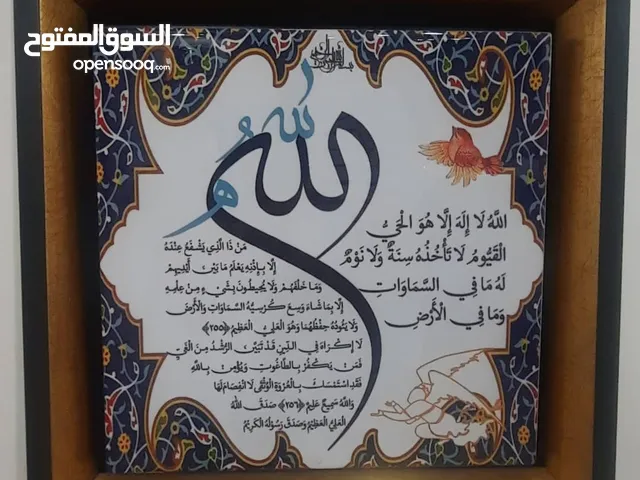 السوق المفتوح
opensooq.com
الله
اللَّهُ لَا إِلَهَ إِلَّا هُوَ الْحَيُّ
الْقَيُّومُ لَا تَأْخُذُهُ سِنَةٌ وَلَا نَوْمٌ
لَهُ مَا فِي السَّمَاوَاتِ
وَمَا فِي الْأَرْضِ
مَنْ ذَا الَّذِي يَشْفَعُ عِنْدَهُ
إِلَّا بِإِذْنِهِ يَعْلَمُ مَا بَيْنَ أَيْدِيهِمْ
وَمَا خَلْفَهُمْ وَلَا يُحِيطُونَ بِشَيْءٍ مِنْ عِلْمِهِ
إِلَّا بِمَا شَاءَ وَسِعَ كُرْسِيُّهُ السَّمَاوَاتِ وَالْأَرْضَ
وَلَا يَئُودُهُ حِفْظُهُمَا وَهُوَ الْعَلِيُّ الْعَظِيمُ ﴿٢٥٥﴾
لَا إِكْرَاهَ فِي الدِّينِ قَدْ تَبَيَّنَ الرُّشْدُ مِنَ الْغَيِّ
فَمَنْ يَكْفُرْ بِالطَّاغُوتِ وَيُؤْمِنْ بِاللَّهِ
فَقَدِ اسْتَمْسَكَ بِالْعُرْوَةِ الْوُثْقَى لَا انْفِصَامَ لَهَا
وَاللَّهُ سَمِيعٌ عَلِيمٌ ﴿٢٥٦﴾ صَدَقَ اللَّهُ
الْعَلِيُّ الْعَظِيمُ وَصَدَقَ رَسُولُهُ الْكَرِيمُ